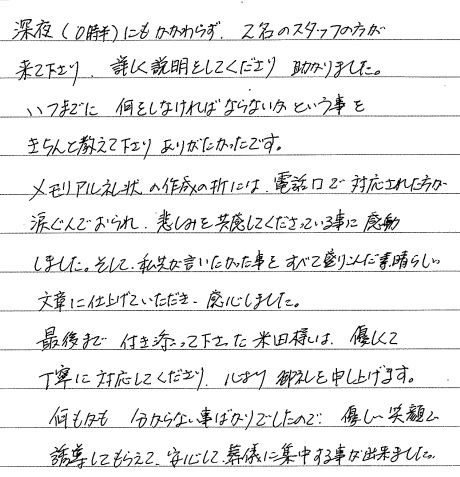 深夜(0時半)にもかかわらず、2名のスタッフの方が
来て下さり、詳しく説明をしてくださり 助かりました。
いつまでに 何をしなければならないか という事を
きちんと教えて下さり ありがたかったです。
メモリアル礼状の作成の折には、電話口で対応された方が
涙ぐんでおられ、悲しみを共感してくださっている事に感動
しました。そして、私共が言いたかった事をすべて盛りこんだ素晴らしい
文章に仕上げていただき、感心しました。
最後まで 付き添って下さった 米田様は、優しくて
丁寧に対応してくださり、心より御礼を申し上げます。
何もかも 分からない事ばかりでしたので、優しい笑顔で
誘導してもらえて、安心して葬儀に集中する事が出来ました。